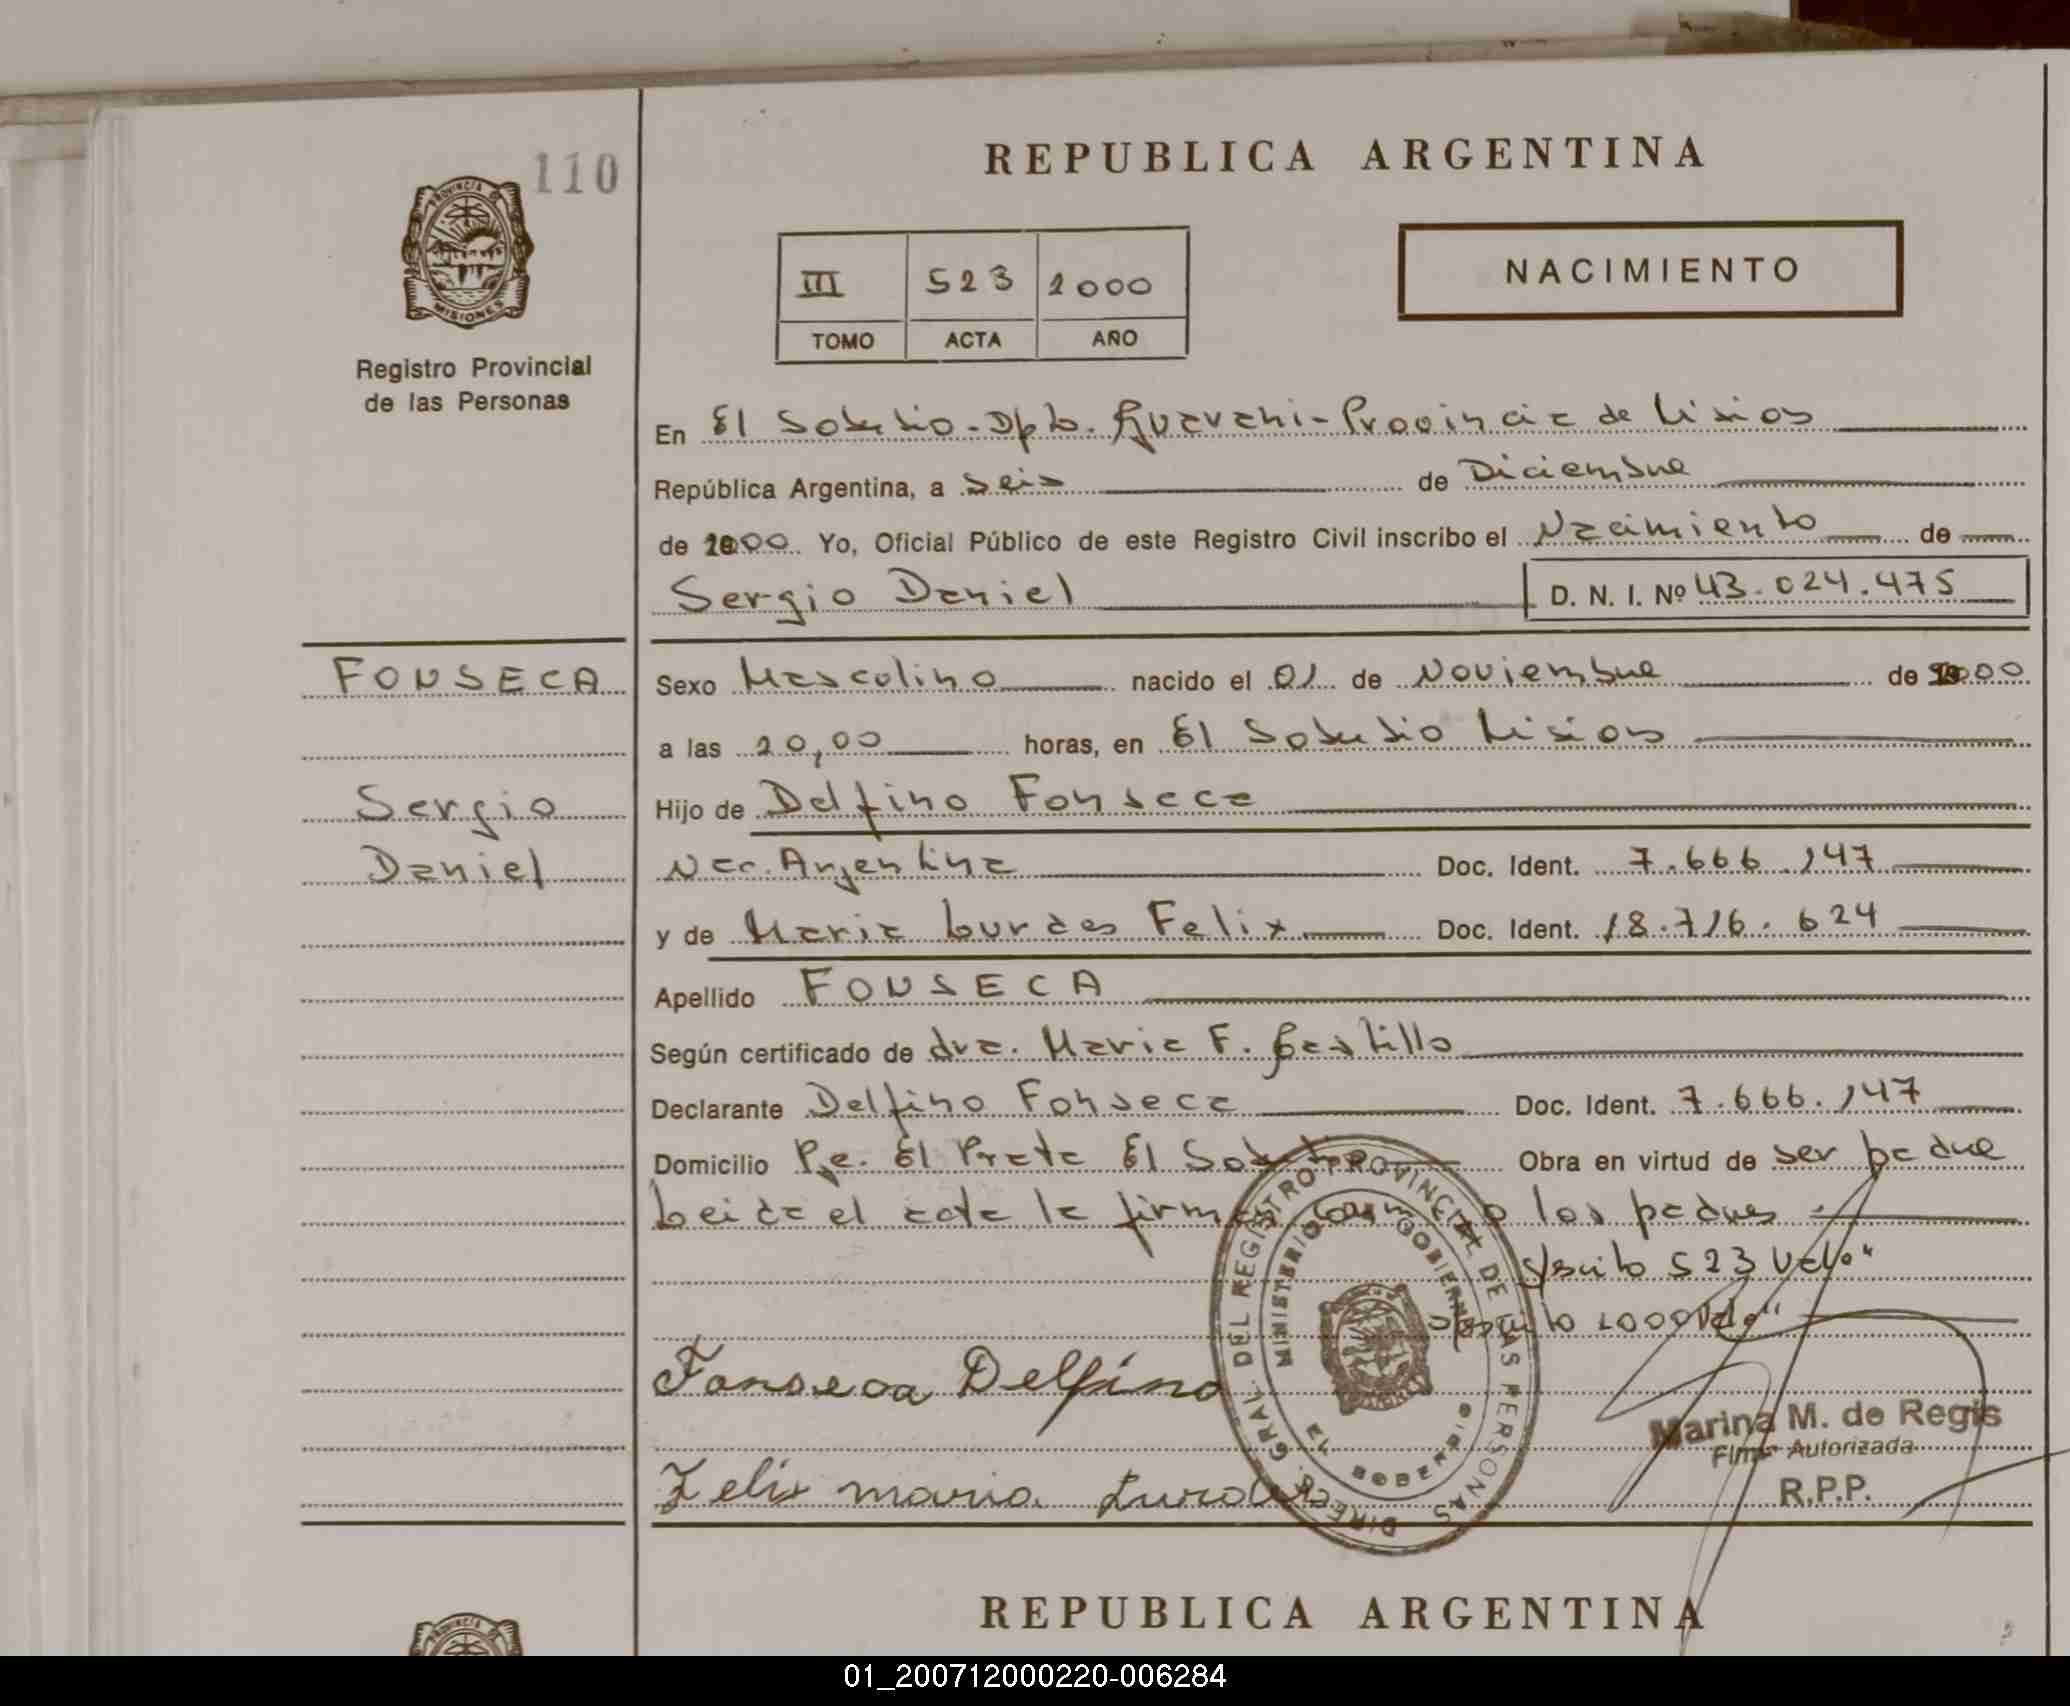 110
PROVINCIA DE
MISIONES
Registro Provincial
de las Personas
REPUBLICA ARGENTINA
III 523 2000
TOMO ACTA AÑO
NACIMIENTO
En El Soberbio - Dpto. Guarani - Provincia de Misiones
República Argentina, a seis de Diciembre
de 2000 Yo, Oficial Público de este Registro Civil inscribo el Nacimiento de
Sergio Daniel D. N. I. Nº 43.024.475
FONSECA
Sergio
Daniel
Sexo Masculino nacido el 01 de Noviembre de 2000
a las 20,00 horas, en El Soberbio Misiones
Hijo de Delfino Fonseca
Nac. Argentina Doc. Ident. 7.666.147
y de Maria Lurdes Felix Doc. Ident. 18.716.624
Apellido FONSECA
Según certificado de dra. Maria F. Castillo
Declarante Delfino Fonseca Doc. Ident. 7.666.147
Domicilio Pje. El Prata El Soberbio Obra en virtud de ser padre
Leida el acta la firman conmigo los padres
523 Vale"
2000 Vale"
Fonseca Delfino
Felix maria Lurdes
DIRECC. GRAL. DEL REGISTRO PROVINCIAL DE LAS PERSONAS
MINISTERIO DE GOBIERNO
EL SOBERBIO
Marina M. de Regis
Firma Autorizada
R.P.P.
REPUBLICA ARGENTINA
PROVINCIA DE
01_200712000220-006284